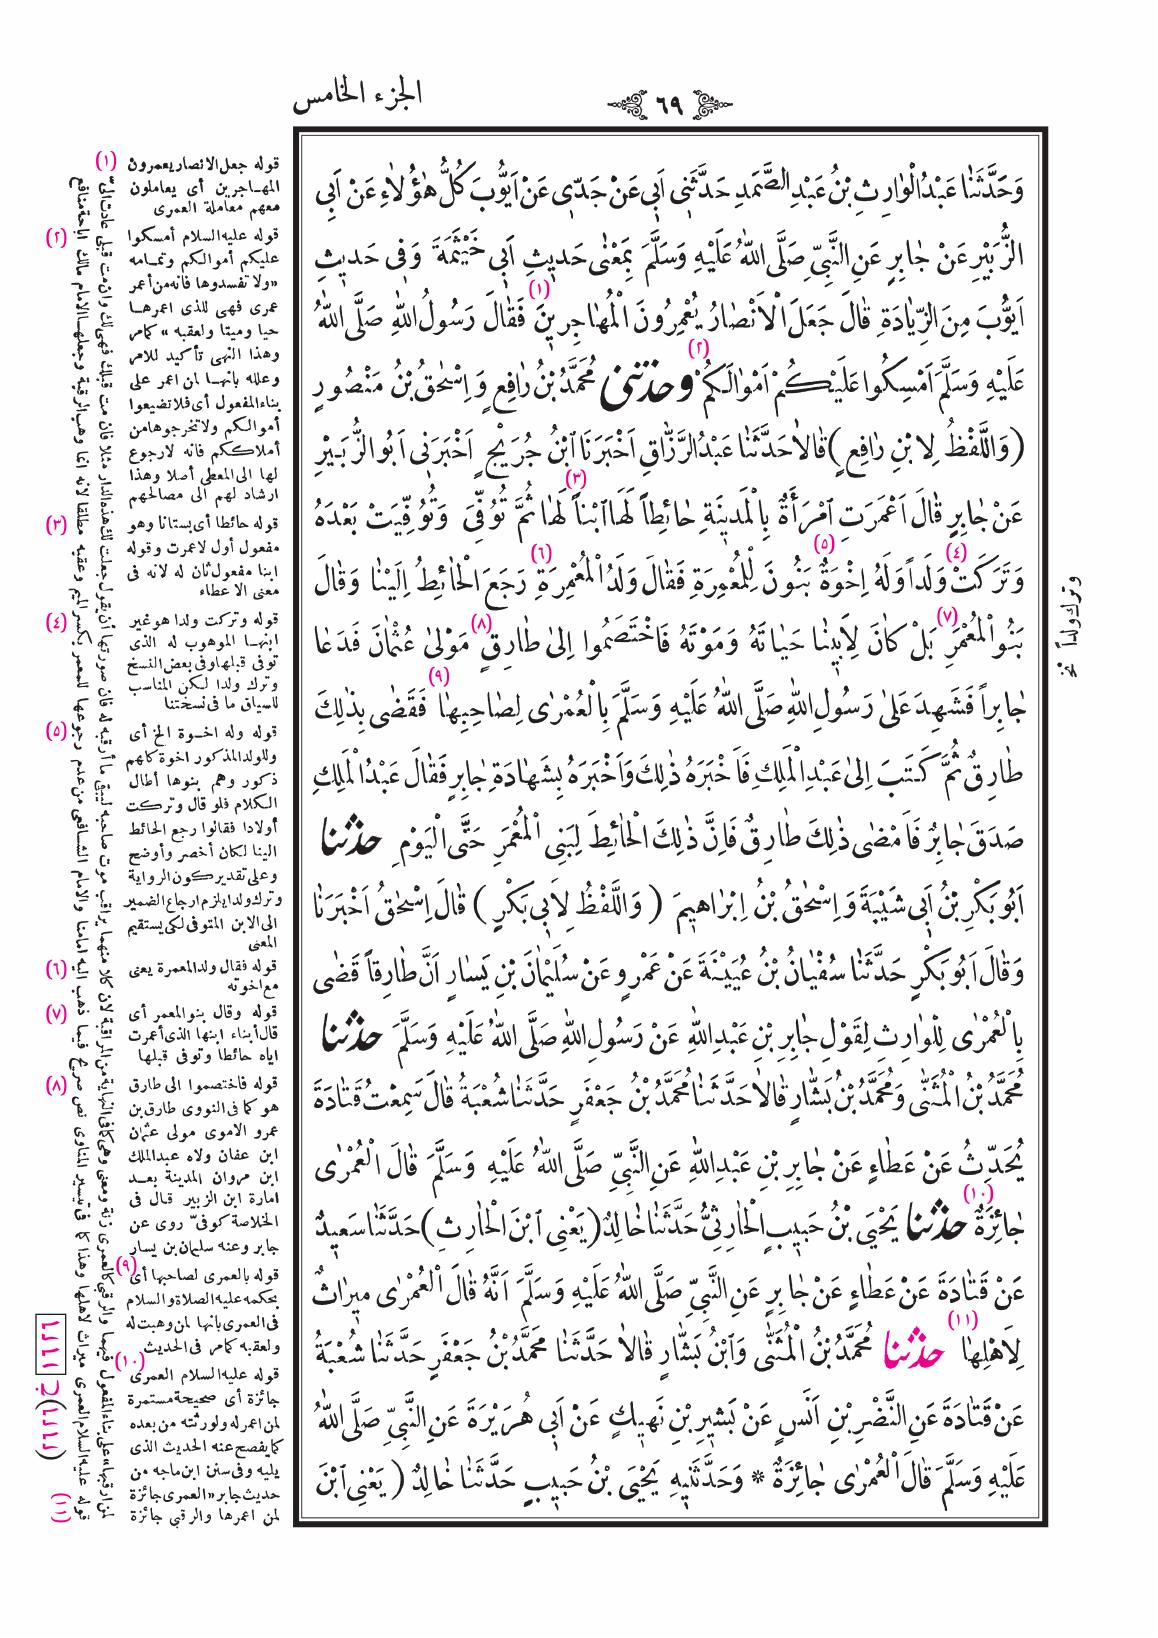 الجزء الخامس
٦٩
وَحَدَّثَنَا عَبْدُ الْوَارِثِ بْنُ عَبْدِ الصَّمَدِ حَدَّثَنِى اَبِى عَنْ جَدِّى عَنْ اَيُّوبَ كُلُّ هٰؤُلَاءِ عَنْ اَبِى
الزُّبَيْرِ عَنْ جَابِرٍ عَنِ النَّبِىِّ صَلَّى اللهُ عَلَيْهِ وَسَلَّمَ بِمَعْنٰى حَدِيثِ اَبِى خَيْثَمَةَ وَفِى حَدِيثِ
اَيُّوبَ مِنَ الزِّيَادَةِ قَالَ جَعَلَ الْاَنْصَارُ يُعْمِرُونَ الْمُهَاجِرِينَ (١) فَقَالَ رَسُولُ اللهِ صَلَّى اللهُ
عَلَيْهِ وَسَلَّمَ اَمْسِكُوا عَلَيْكُمْ اَمْوَالَكُمْ (٢) وحَدَّثَنِى مُحَمَّدُ بْنُ رَافِعٍ وَاِسْحٰقُ بْنُ مَنْصُورٍ
(وَاللَّفْظُ لِابْنِ رَافِعٍ) قَالَا حَدَّثَنَا عَبْدُ الرَّزَّاقِ اَخْبَرَنَا ابْنُ جُرَيْجٍ اَخْبَرَنِى اَبُو الزُّبَيْرِ
عَنْ جَابِرٍ قَالَ اَعْمَرَتِ امْرَأَةٌ بِالْمَدِينَةِ حَائِطاً لَهَا ابْناً (٣) لَهَا ثُمَّ تُوُفِّىَ وَتُوُفِّيَتْ بَعْدَهُ
وَتَرَكَتْ (٤) وَلَداً وَلَهُ اِخْوَةٌ (٥) بَنُونَ لِلْمُعْمِرَةِ فَقَالَ وَلَدُ الْمُعْمِرَةِ (٦) رَجَعَ الْحَائِطُ اِلَيْنَا وَقَالَ
بَنُو الْمُعْمَرِ (٧) بَلْ كَانَ لِاَبِينَا حَيَاتَهُ وَمَوْتَهُ فَاخْتَصَمُوا اِلٰى طَارِقٍ (٨) مَوْلٰى عُثْمٰانَ فَدَعَا
جَابِراً فَشَهِدَ عَلٰى رَسُولِ اللهِ صَلَّى اللهُ عَلَيْهِ وَسَلَّمَ بِالْعُمْرٰى لِصَاحِبِهَا (٩) فَقَضٰى بِذٰلِكَ
طَارِقٌ ثُمَّ كَتَبَ اِلٰى عَبْدِ الْمَلِكِ فَاَخْبَرَهُ ذٰلِكَ وَاَخْبَرَهُ بِشَهَادَةِ جَابِرٍ فَقَالَ عَبْدُ الْمَلِكِ
صَدَقَ جَابِرٌ فَاَمْضٰى ذٰلِكَ طَارِقٌ فَاِنَّ ذٰلِكَ الْحَائِطَ لِبَنِى الْمُعْمَرِ حَتَّى الْيَوْمِ حَدَّثَنَا
اَبُو بَكْرِ بْنُ اَبِى شَيْبَةَ وَاِسْحٰقُ بْنُ اِبْرَاهِيمَ (وَاللَّفْظُ لِاَبِى بَكْرٍ) قَالَ اِسْحٰقُ اَخْبَرَنَا
وَقَالَ اَبُو بَكْرٍ حَدَّثَنَا سُفْيَانُ بْنُ عُيَيْنَةَ عَنْ عَمْرٍو عَنْ سُلَيْمَانَ بْنِ يَسَارٍ اَنَّ طَارِقاً قَضٰى
بِالْعُمْرٰى لِلْوَارِثِ لِقَوْلِ جَابِرِ بْنِ عَبْدِ اللهِ عَنْ رَسُولِ اللهِ صَلَّى اللهُ عَلَيْهِ وَسَلَّمَ حَدَّثَنَا
مُحَمَّدُ بْنُ الْمُثَنّٰى وَمُحَمَّدُ بْنُ بَشَّارٍ قَالَا حَدَّثَنَا مُحَمَّدُ بْنُ جَعْفَرٍ حَدَّثَنَا شُعْبَةُ قَالَ سَمِعْتُ قَتَادَةَ
يُحَدِّثُ عَنْ عَطَاءٍ عَنْ جَابِرِ بْنِ عَبْدِ اللهِ عَنِ النَّبِىِّ صَلَّى اللهُ عَلَيْهِ وَسَلَّمَ قَالَ الْعُمْرٰى
جَائِزَةٌ (١٠) حَدَّثَنَا يَحْيَى بْنُ حَبِيبٍ الْحَارِثِىُّ حَدَّثَنَا خَالِدٌ (يَعْنِى ابْنَ الْحَارِثِ) حَدَّثَنَا سَعِيدٌ
عَنْ قَتَادَةَ عَنْ عَطَاءٍ عَنْ جَابِرٍ عَنِ النَّبِىِّ صَلَّى اللهُ عَلَيْهِ وَسَلَّمَ اَنَّهُ قَالَ الْعُمْرٰى مِيرَاثٌ
لِاَهْلِهَا (١١) حَدَّثَنَا مُحَمَّدُ بْنُ الْمُثَنّٰى وَابْنُ بَشَّارٍ قَالَا حَدَّثَنَا مُحَمَّدُ بْنُ جَعْفَرٍ حَدَّثَنَا شُعْبَةُ
عَنْ قَتَادَةَ عَنِ النَّضْرِ بْنِ اَنَسٍ عَنْ بَشِيرِ بْنِ نَهِيكٍ عَنْ اَبِى هُرَيْرَةَ عَنِ النَّبِىِّ صَلَّى اللهُ
عَلَيْهِ وَسَلَّمَ قَالَ الْعُمْرٰى جَائِزَةٌ * وَحَدَّثَنِيهِ يَحْيَى بْنُ حَبِيبٍ حَدَّثَنَا خَالِدٌ (يَعْنِى ابْنَ
وترك ولداً نخ
(١) قوله جعل الانصار يعمرون
المهاجرين أى يعاملون
معهم معاملة العمرى
(٢) قوله عليه السلام أمسكوا
عليكم أموالكم وتمامه
«ولا تفسدوها فانه من أعمر
عمرى فهى للذى اعمرها
حيا وميتا ولعقبه» كمامر
وهذا النهى تأكيد للامر
وعلله بانها لمن اعمر على
بناء المفعول أى فلا تضيعوا
أموالكم ولا تخرجوها من
أملاككم فانه لا رجوع
لها الى المعطى أصلا وهذا
ارشاد لهم الى مصالحهم
(٣) قوله حائطا أى بستانا وهو
مفعول أول لاعمرت وقوله
ابنا مفعول ثان له لانه فى
معنى الاعطاء
(٤) قوله وتركت ولدا هو غير
ابنها الموهوب له الذى
توفى قبلها وفى بعض النسخ
وترك ولدا لكن المناسب
للسياق ما فى نسختنا
(٥) قوله وله اخوة الخ أى
وللولد المذكور اخوة كاهم
ذكور وهم بنوها أطال
الكلام فلو قال وتركت
أولادا فقالوا رجع الحائط
الينا لكان أخصر وأوضح
وعلى تقدير كون الرواية
وترك ولدا يلزم ارجاع الضمير
الى الابن المتوفى لكى يستقيم
المعنى
(٦) قوله فقال ولد المعمرة يعنى
مع اخوته
(٧) قوله وقال بنو المعمر أى
قال أبناء ابنها الذى أعمرت
اياه حائطا وتوفى قبلها
(٨) قوله فاختصموا الى طارق
هو كما فى النووى طارق بن
عمرو الاموى مولى عثمان
ابن عفان ولاه عبد الملك
ابن مروان المدينة بعد
امارة ابن الزبير قال فى
الخلاصة كوفىّ روى عن
جابر وعنه سليمان بن يسار
(٩) قوله بالعمرى لصاحبها أى
بحكمه عليه الصلاة والسلام
فى العمرى بانها لمن وهبت له
ولعقبه كمامر فى الحديث
(١٠) قوله عليه السلام العمرى
جائزة أى صحيحة مستمرة
لمن اعمر له ولورثته من بعده
كما يفصح عنه الحديث الذى
يليه وفى سنن ابن ماجه من
حديث جابر «العمرى جائزة
لمن اعمرها والرقبى جائزة
لمن ارقبها» على بناء المفعول فيهما والرقبى كالعمرى زنة ومعنى وهى كما فى النهاية من المراقبة لان كلا منهما يراقب موت صاحبه ليبقى ما أرقبه له فان صورتها أن يقول جعلت لك هذه الدار مثلا فان مت قبلك فهى لك وان مت قبلى عادت الىّ
(١١) قوله عليه السلام العمرى ميراث لاهلها وهذا كما فى تيسير المناوى نص صريح فيما ذهب اليه امامنا والامام الشافعى من عدم رجوعها للمعمر بكسر الميم وعقبه مطلقا لانه انما وهب الرقبة وجعلها الامام مالك اباحة منافع